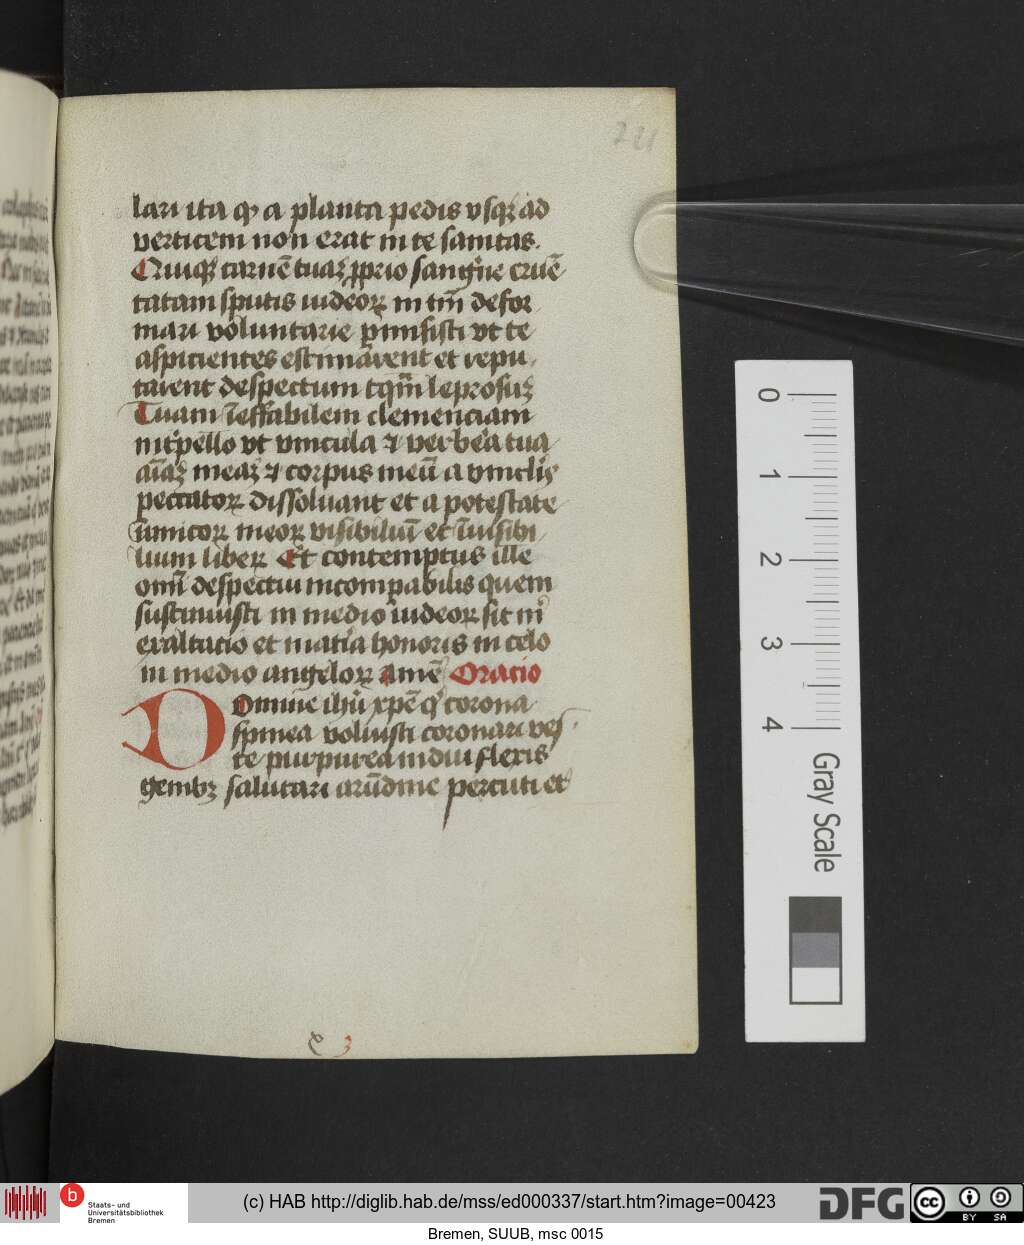 221
lari ita qꝫ a planta pedis vsqꝫ ad
verticem non erat in te sanitas.
Cuiusqꝫ carnē tuaꝫ ꝓprio sangͥne cruē
tatam sputis iudeoꝝ in tm̄ defor
mari voluntarie ꝑmisisti vt te
aspicientes estimarent et repu
tarent despectum tqm̄ leprosuꝫ
Tuam īeffabilem clemenciam
intͥpello vt vincula ⁊ verbera tua
aīaꝫ meaꝫ ⁊ corpus meū a vinclis
peccatoꝝ dissoluant et a potestate
īimicoꝝ meoꝝ visibiliū et īuisibi
lium liberꝫ Et contemptus ille
omī despectiu incompabilis quem
sustinuisti in medio iudeoꝝ sit mͥ
exaltacio et matͥa honoris in celo
in medio angeloꝝ Amē Oracio
Domine ihū xp̄e qͥ corona
spinea voluisti coronari ves
te purpurea indui flexis
genibꝫ salutari arūdine percuti et
0
1
2
3
4
Gray Scale
b Staats- und
Universitätsbibliothek
Bremen
(c) HAB http://diglib.hab.de/mss/ed000337/start.htm?image=00423
DFG
cc BY SA
Bremen, SUUB, msc 0015